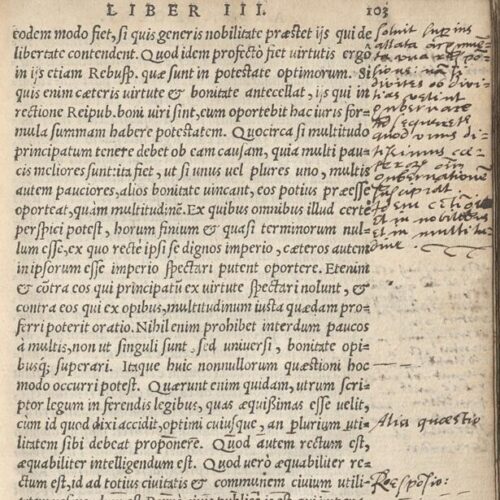 LIBER III.
103
eodem modo fiet, si quis generis nobilitate præstet ijs qui de
libertate contendent. Quod idem profectò fiet virtutis ergo
in ijs etiam Rebusp. quæ sunt in potestate optimorum. Si
quis enim cæteris virtute & bonitate antecellat, ijs qui in
rectione Reipub. boni viri sint, eum oportebit hac iuris for-
mula summam habere potestatem. Quocirca si multitudo
principatum tenere debet ob eam causam, quia multi pau-
cis meliores sunt: ita fiet, ut si unus vel plures uno, multis
autem pauciores, alios bonitate vincant, eos potius præesse
oporteat, quàm multitudinē. Ex quibus omnibus illud certè
perspici potest, horum finium & quasi terminorum nul-
lum esse, ex quo recte ipsi se dignos imperio, cæteros autem
in ipsorum esse imperio spectari putent oportere. Etenim
& cōtra eos qui principatū ex virtute spectari nolunt, &
contra eos qui ex opibus, multitudinum iusta quædam pro-
ferri poterit oratio. Nihil enim prohibet interdum paucos
à multis, non ut singuli sunt, sed universi, bonitate opi-
busq; superari. Itaque huic nonnullorum quæstioni hoc
modo occurri potest. Quærunt enim quidam, utrum scri-
ptor legum in ferendis legibus, quas æquißimas esse velit,
cum id quod dixi accidit, optimi cuiusque, an plurium uti-
litatem sibi debeat proponere. Quod autem rectum est,
æquabiliter intelligendum est. Quod verò æquabiliter re-
ctum est, id ad totius civitatis & communem civium utili-
solvit
divites ob divi-
tias velint
gubernare
quod unus di-
et in nobilibus
et in multitu-
dine.
Alia quæstio
Responsio: